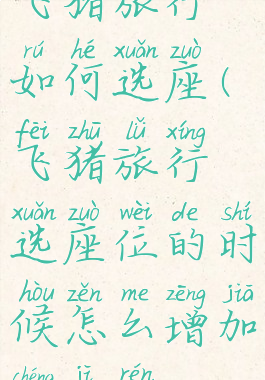 飞猪旅行
rú hé xuǎn zuò
如何选座(
fēi zhū lǚ xíng
飞猪旅行
xuǎn zuò wèi de shí
选座位的时
hòu zěn me zēng jiā
候怎么增加
chéng jī rén